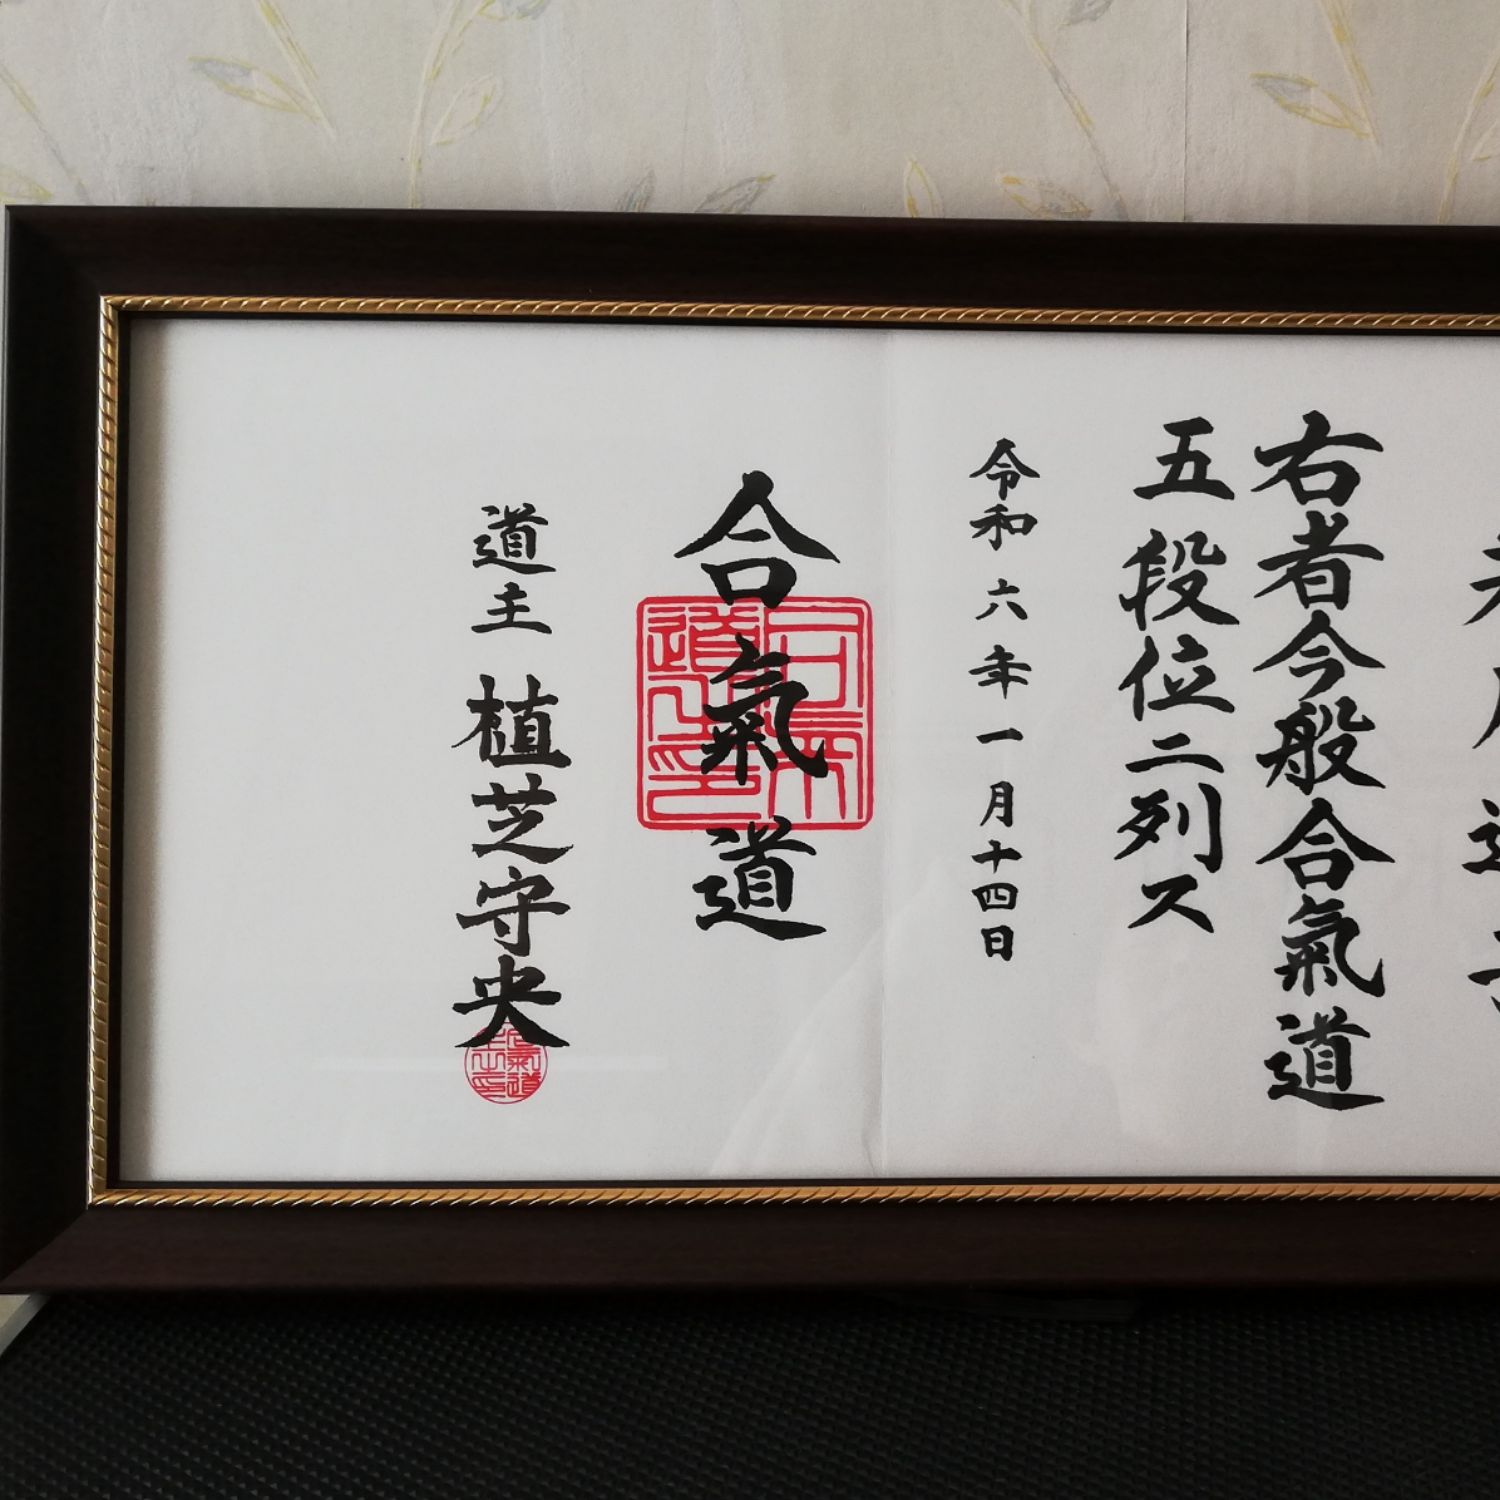 右者今般合氣道
五段位ニ列ス
令和六年一月十四日
合氣道
道主 植芝守央